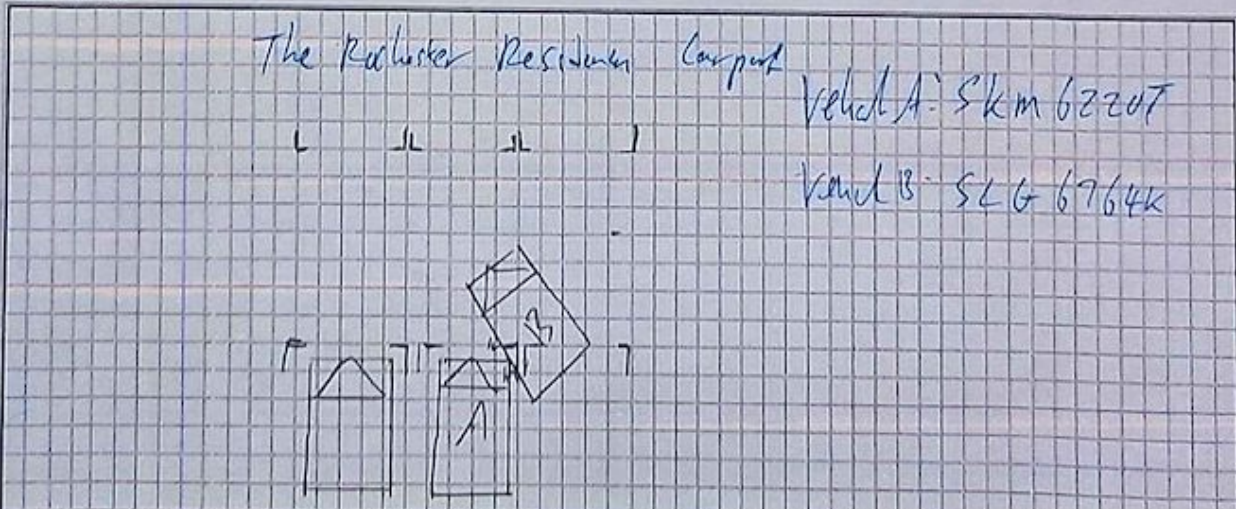 The Rochester Residences Carpark
Vehcl A: SKM 6220T
Vehcl B: SLG 6764K
B
A